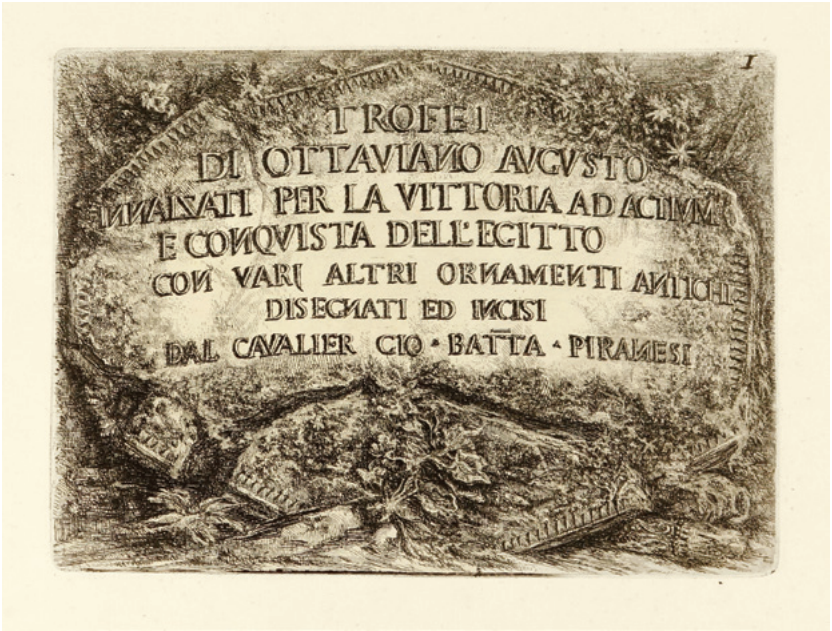 1
TROFEI
DI OTTAVIANO AVGVSTO
INNALZATI PER LA VITTORIA AD ACTIVM
E CONQVISTA DELL'EGITTO
CON VARJ ALTRI ORNAMENTI ANTICHI
DISEGNATI ED INCISI
DAL CAVALIER GIO · BATTA · PIRANESI